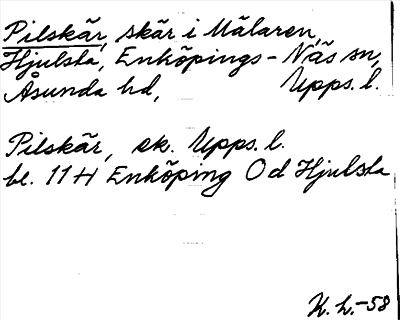 Pilskär, skär i Mälaren,
Hjulsta, Enköpings-Näs sn,
Åsunda hd, Upps. l.
Pilskär, ek. Upps. l.
bl. 11H Enköping 0d Hjulsta
K. L.-58